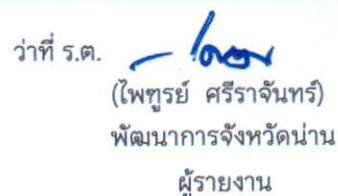 ว่าที่ ร.ต.
(ไพฑูรย์ ศรีราจันทร์)
พัฒนาการจังหวัดน่าน
ผู้รายงาน